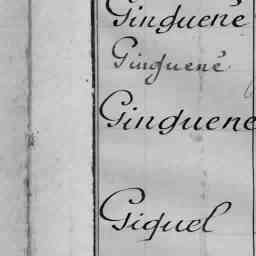 Ginguené
Ginguené
Ginguene
Giquel